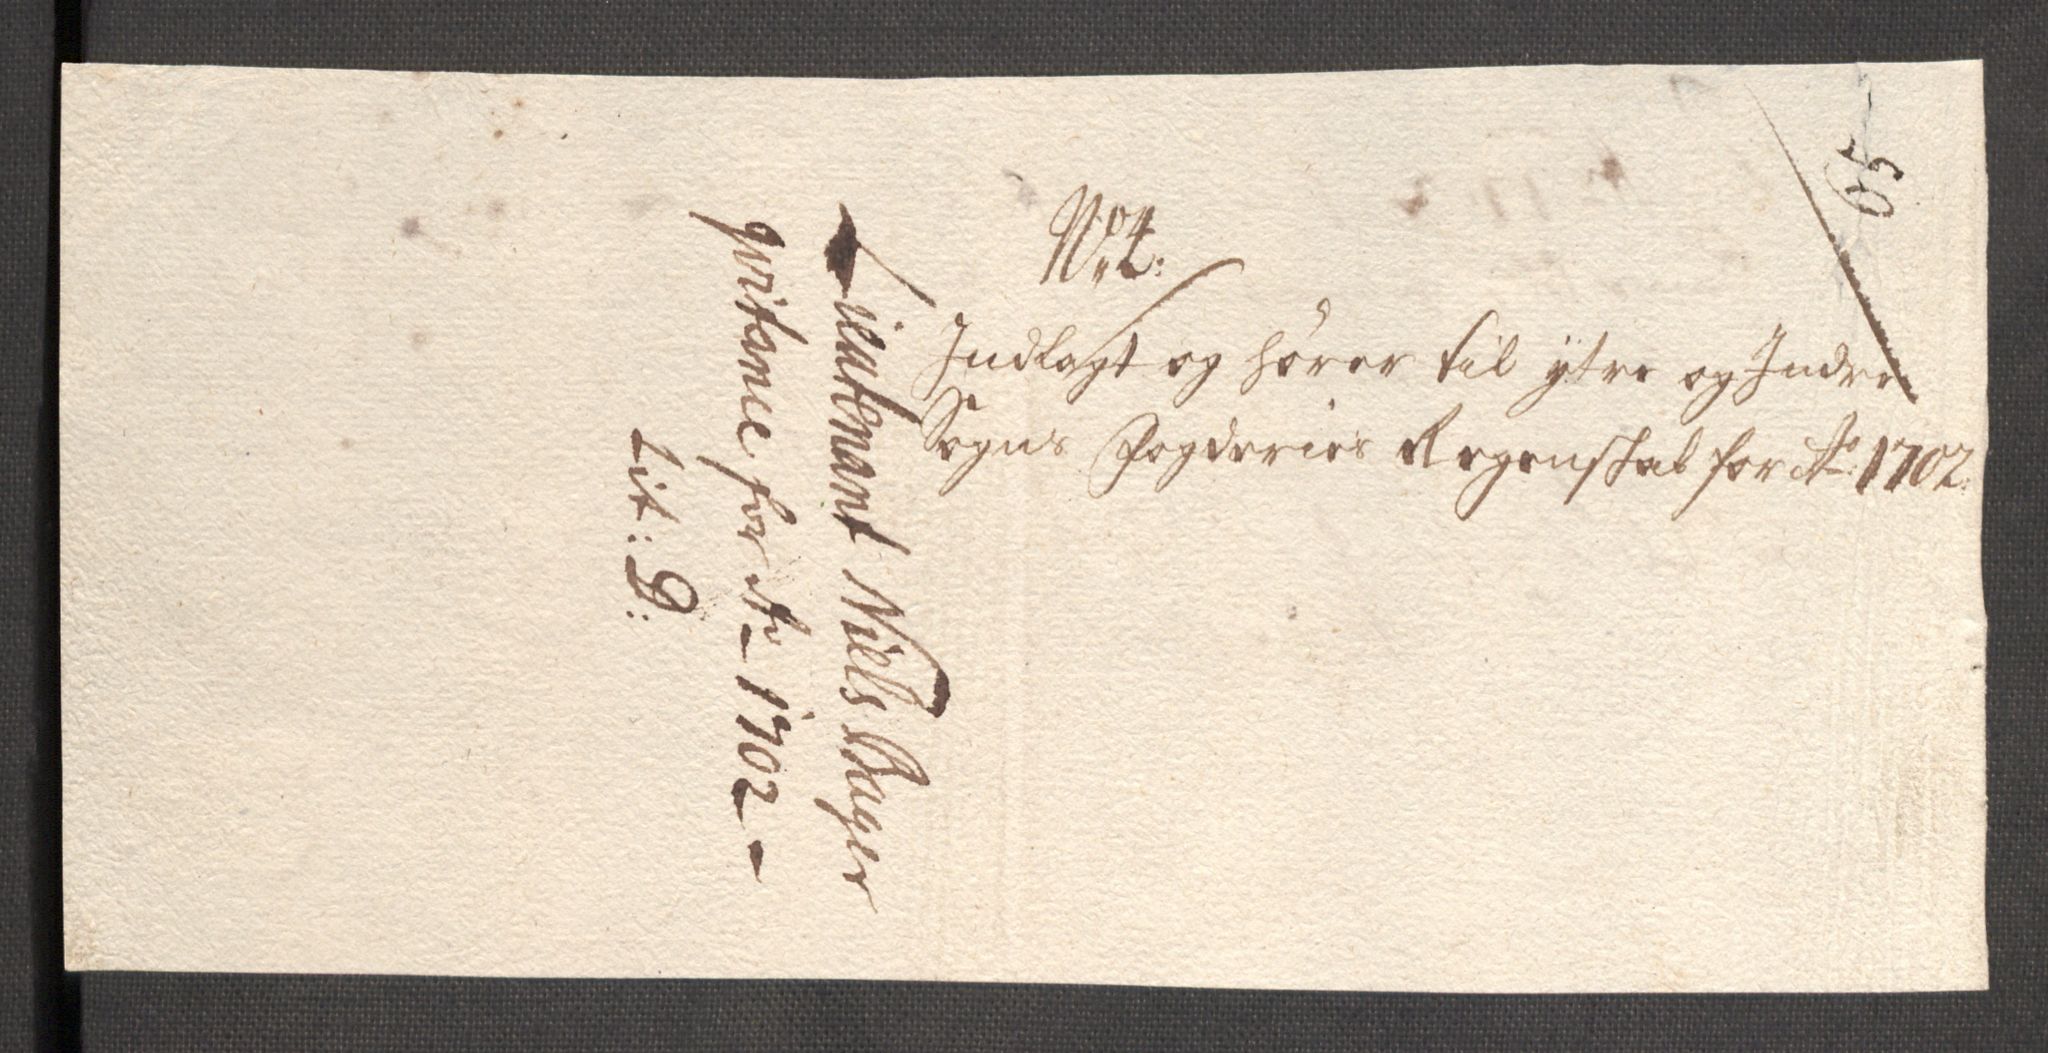 No 4:
Indlagt og hører til ytre og Indre
Sogns Fogderies Regenskab for Ao 1702.
Lieutenant Niels
qvitance for Ao 1702
Lit: G: